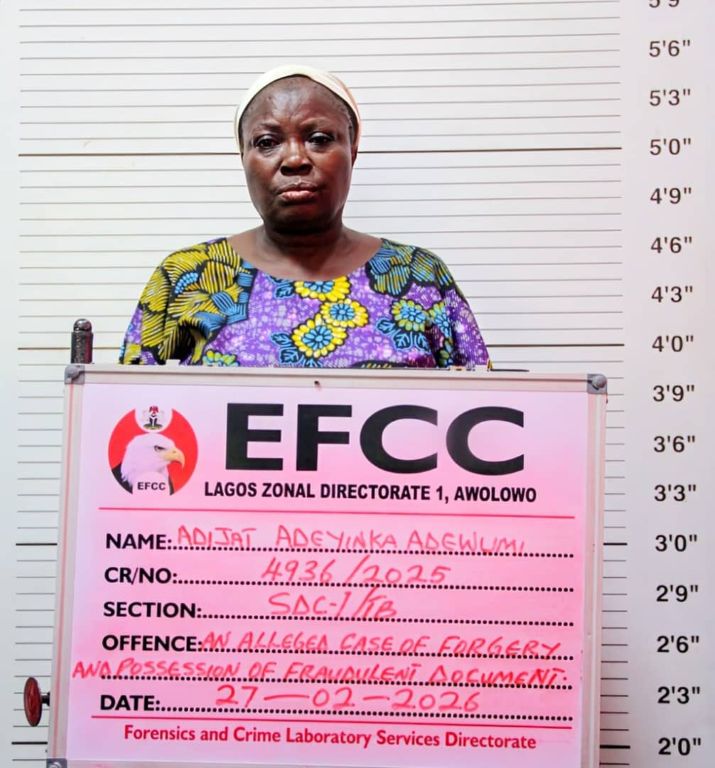 5'9"
5'6"
5'3"
5'0"
4'9"
4'6"
4'3"
4'0"
3'9"
3'6"
3'3"
3'0"
2'9"
2'6"
2'3"
2'0"
EFCC
EFCC
LAGOS ZONAL DIRECTORATE 1, AWOLOWO
NAME: ADIJAT ADEYINKA ADEWUMI
CR/NO: 4936/2025
SECTION: SDC-1/TB
OFFENCE: AN ALLEGED CASE OF FORGERY
AND POSSESSION OF FRAUDULENT DOCUMENT.
DATE: 27-02-2026
Forensics and Crime Laboratory Services Directorate